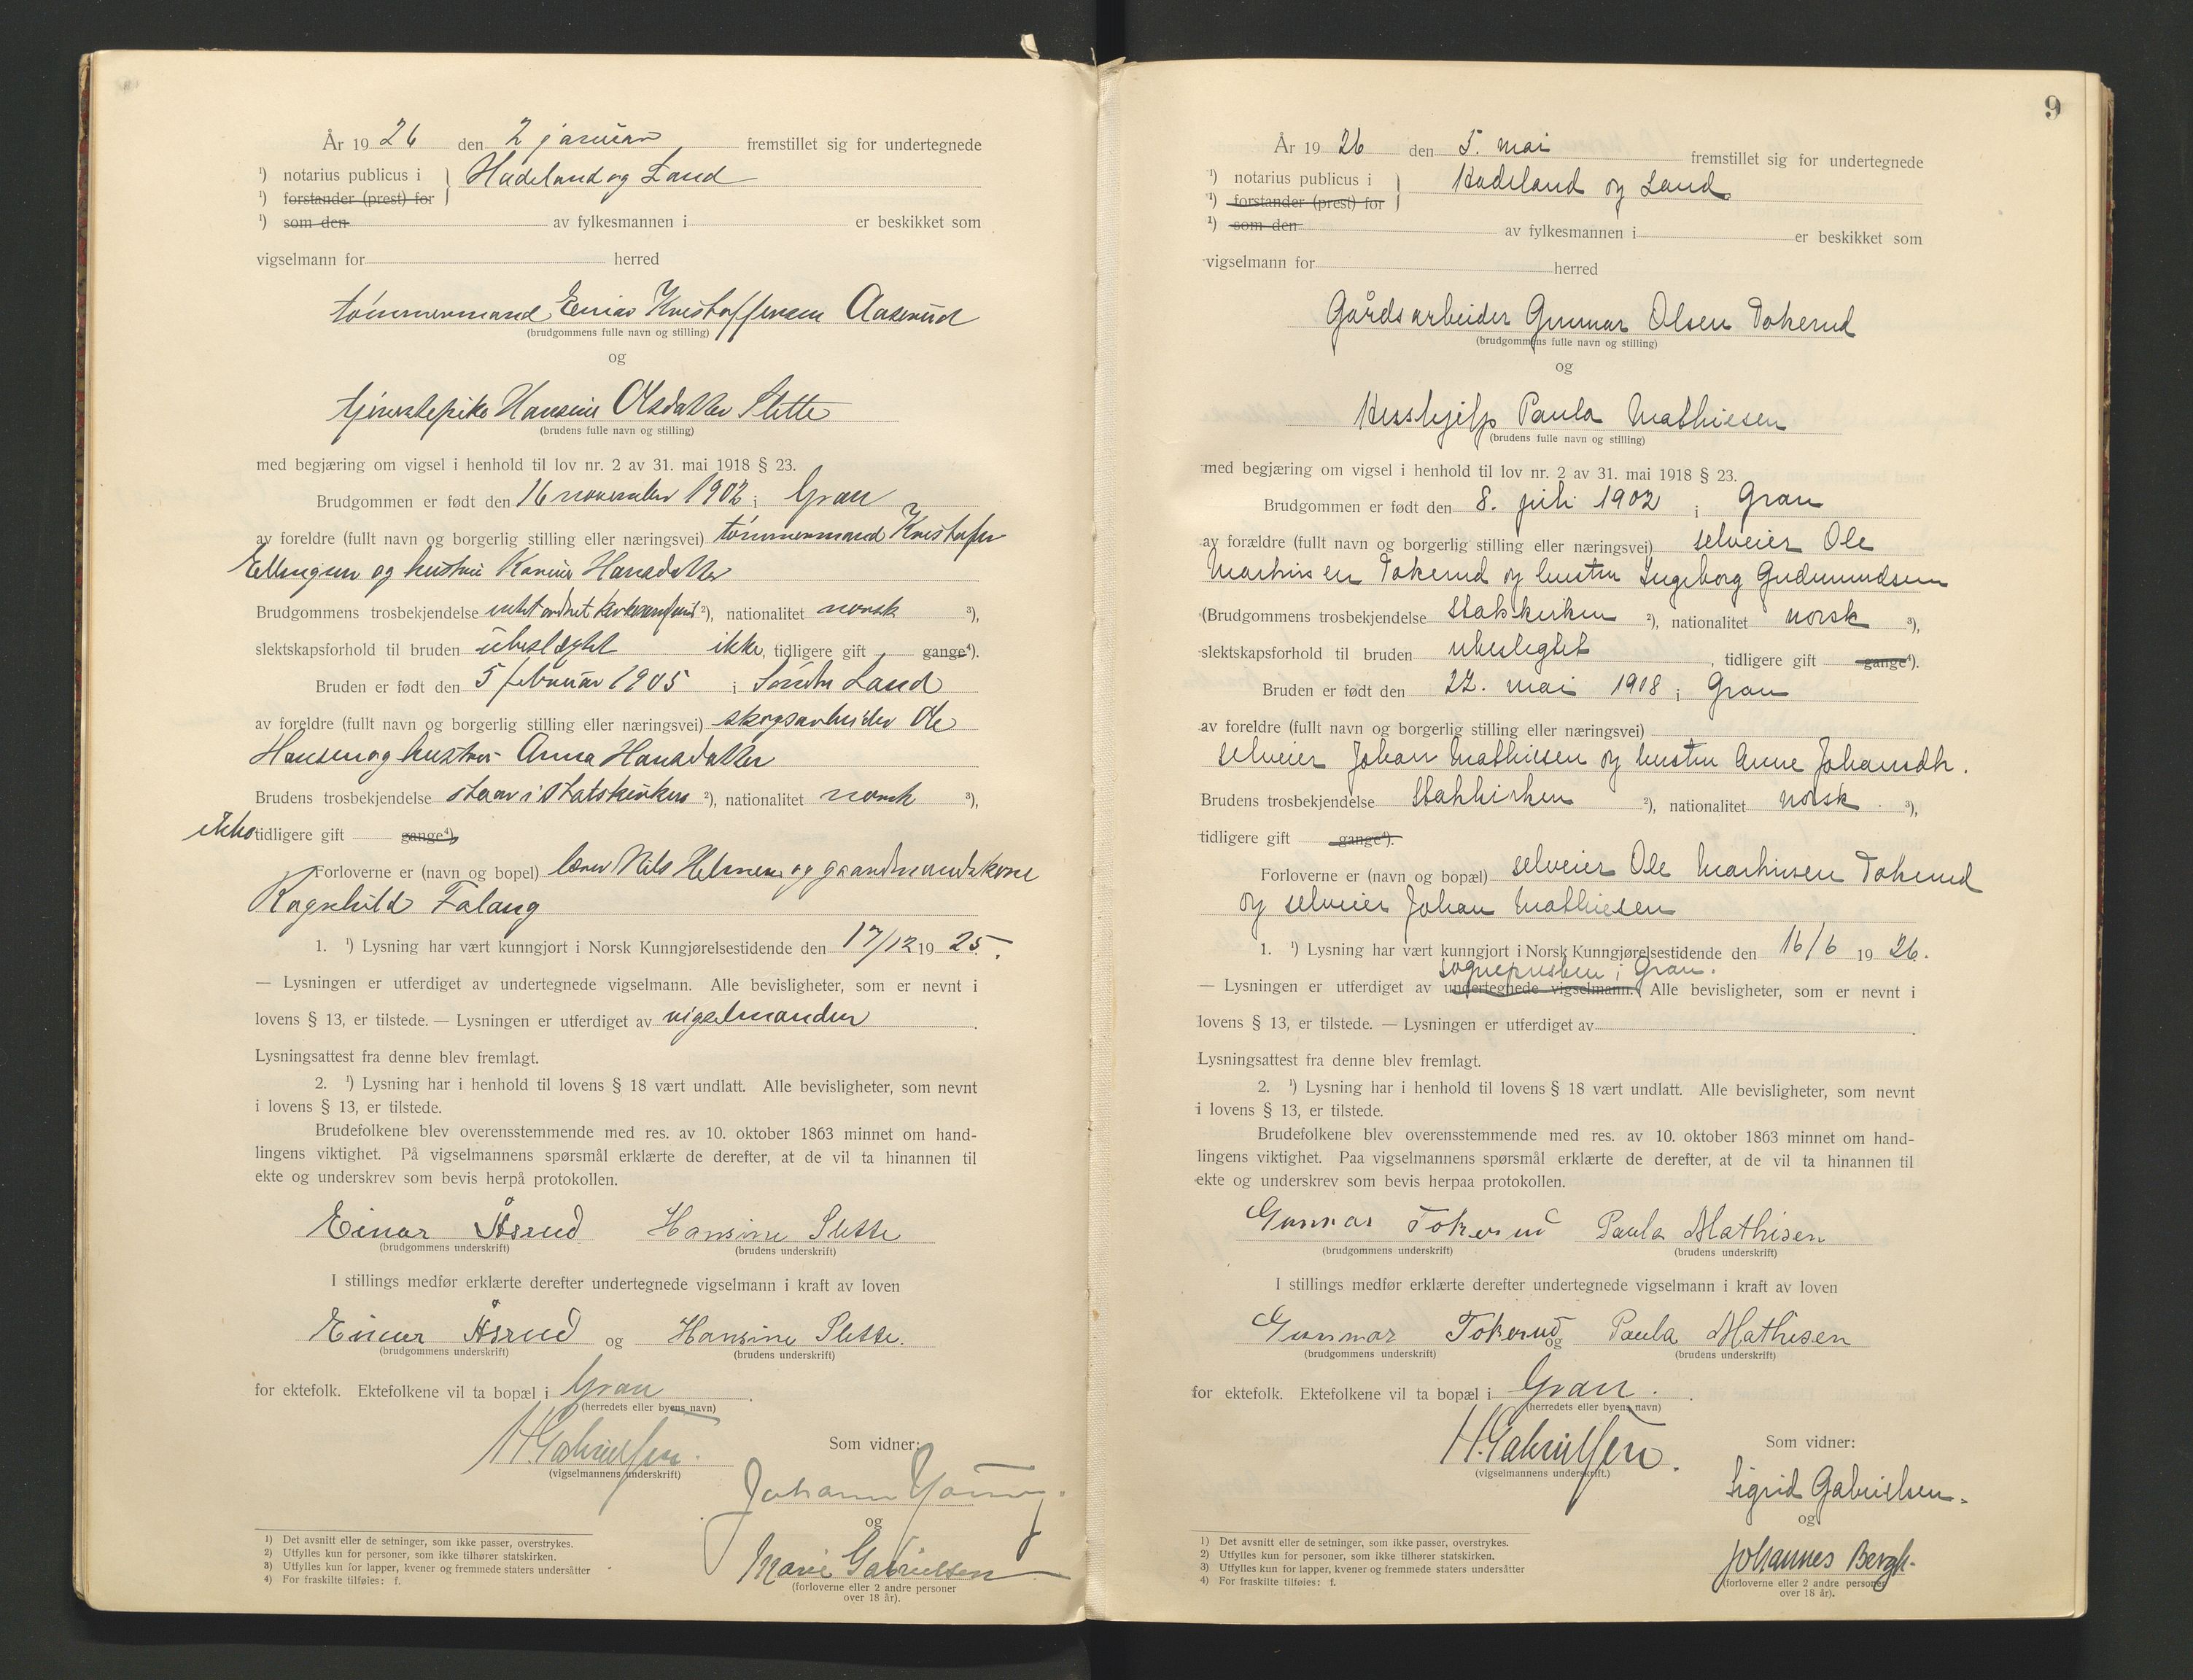 År 19 26 den 2 januar fremstillet sig for undertegnede
¹) notarius publicus i } Hadeland og Land
¹) forstander (prest) for
¹) som den av fylkesmannen i er beskikket som
vigselmann for herred
tömmermand Einar Kristoffersen Aaserud
(brudgommens fulle navn og stilling)
og
tjenestepike Hansine Olsdatter Slette
(brudens fulle navn og stilling)
med begjæring om vigsel i henhold til lov nr. 2 av 31. mai 1918 § 23.
Brudgommen er født den 16 november 1902 i Gran
av foreldre (fullt navn og borgerlig stilling eller næringsvei) tömmermand Kristofer
Ellingsen og hustru Karine Hansdatter
Brudgommens trosbekjendelse ²), nationalitet norsk ³),
slektskapsforhold til bruden ubeslegtet ikke, tidligere gift gange⁴).
Bruden er født den 5 februar 1905 i Söndre Land
av foreldre (fullt navn og borgerlig stilling eller næringsvei) skogsarbeider Ole
Hansen og hustru Anna Hansdatter
Brudens trosbekjendelse staar i statskirken ²), nationalitet norsk ³),
ikke tidligere gift gange⁴)
Forloverne er (navn og bopel) lærer Nils Helmen og gaardmandskone
Ragnhild Falang
1. ¹) Lysning har vært kunngjort i Norsk Kunngjørelsestidende den 17/12 19 25.
— Lysningen er utferdiget av undertegnede vigselmann. Alle bevisligheter, som er nevnt i
lovens § 13, er tilstede. — Lysningen er utferdiget av vigselmanden.
Lysningsattest fra denne blev fremlagt.
2. ¹) Lysning har i henhold til lovens § 18 vært undlatt. Alle bevisligheter, som nevnt
i lovens § 13, er tilstede.
Brudefolkene blev overensstemmende med res. av 10. oktober 1863 minnet om hand-
lingens viktighet. På vigselmannens spørsmål erklærte de derefter, at de vil ta hinannen til
ekte og underskrev som bevis herpå protokollen.
Einar Åsrud Hansine Slette
(brudgommens underskrift) (brudens underskrift)
I stillings medfør erklærte derefter undertegnede vigselmann i kraft av loven
Einar Åsrud og Hansine Slette.
(brudgommens underskrift) (brudens underskrift)
for ektefolk. Ektefolkene vil ta bopæl i Gran.
(herredets eller byens navn)
H. Gabrielsen.
(vigselmannens underskrift)
Som vidner:
Johann
og
Marie Gabrielsen
(forloverne eller 2 andre personer
over 18 år).
1) Det avsnitt eller de setninger, som ikke passer, overstrykes.
2) Utfylles kun for personer, som ikke tilhører statskirken.
3) Utfylles kun for lapper, kvener og fremmede staters undersåtter
4) For fraskilte tilføies: f.
9
År 19 26 den 5. mai fremstillet sig for undertegnede
¹) notarius publicus i } Hadeland og Land
¹) forstander (prest) for
¹) som den av fylkesmannen i er beskikket som
vigselmann for herred
Gårdsarbeider Gunnar Olsen Tokerud
(brudgommens fulle navn og stilling)
og
Husshjelp Paula Mathiesen
(brudens fulle navn og stilling)
med begjæring om vigsel i henhold til lov nr. 2 av 31. mai 1918 § 23.
Brudgommen er født den 8. juli 1902 i Gran
av forældre (fullt navn og borgerlig stilling eller næringsvei) selveier Ole
Mathisen Tokerud og hustru Ingeborg Gudmundsen
(Brudgommens trosbekjendelse Statskirken ²), nationalitet norsk ³),
slektskapsforhold til bruden ubeslegtet, tidligere gift gange⁴).
Bruden er født den 22. mai 1908 i Gran
av foreldre (fullt navn og borgerlig stilling eller næringsvei)
selveier Johan Mathiesen og hustru Anne Johansdtr.
Brudens trosbekjendelse Statskirken ²), nationalitet norsk ³),
tidligere gift gange⁴).
Forloverne er (navn og bopæl) selveier Ole Mathisen Tokerud
og selveier Johan Mathiesen
1. ¹) Lysning har vært kunngjort i Norsk Kunngjørelsestidende den 16/6 19 26.
sognepresten i Gran.
— Lysningen er utferdiget av undertegnede vigselmann. Alle bevisligheter, som er nevnt i
lovens § 13, er tilstede. — Lysningen er utferdiget av .
Lysningsattest fra denne blev fremlagt.
2. ¹) Lysning har i henhold til lovens § 18 vært undlatt. Alle bevisligheter, som nevnt
i lovens § 13, er tilstede.
Brudefolkene blev overensstemmende med res. av 10. oktober 1863 minnet om hand-
lingens viktighet. Paa vigselmannens spørsmål erklærte de derefter, at de vil ta hinannen til
ekte og underskrev som bevis herpaa protokollen.
Gunnar Tokerud Paula Mathisen
(brudgommens underskrift) (brudens underskrift)
I stillings medfør erklærte derefter undertegnede vigselmann i kraft av loven
Gunnar Tokerud og Paula Mathisen
(brudgommens underskrift) (brudens underskrift)
for ektefolk. Ektefolkene vil ta bopæl i Gran.
(herredets eller byens navn)
H. Gabrielsen.
(vigselmannens underskrift.)
Som vidner:
Sigrid Gabrielsen.
og
Johannes Bergh.
(forloverne eller 2 andre personer
over 18 år).
1) Det avsnitt eller de setninger, som ikke passer, overstrykes.
2) Utfylles kun for personer, som ikke tilhører statskirken.
3) Utfylles kun for lapper, kvener og fremmede staters undersåtter
4) For fraskilte tilføies: f.